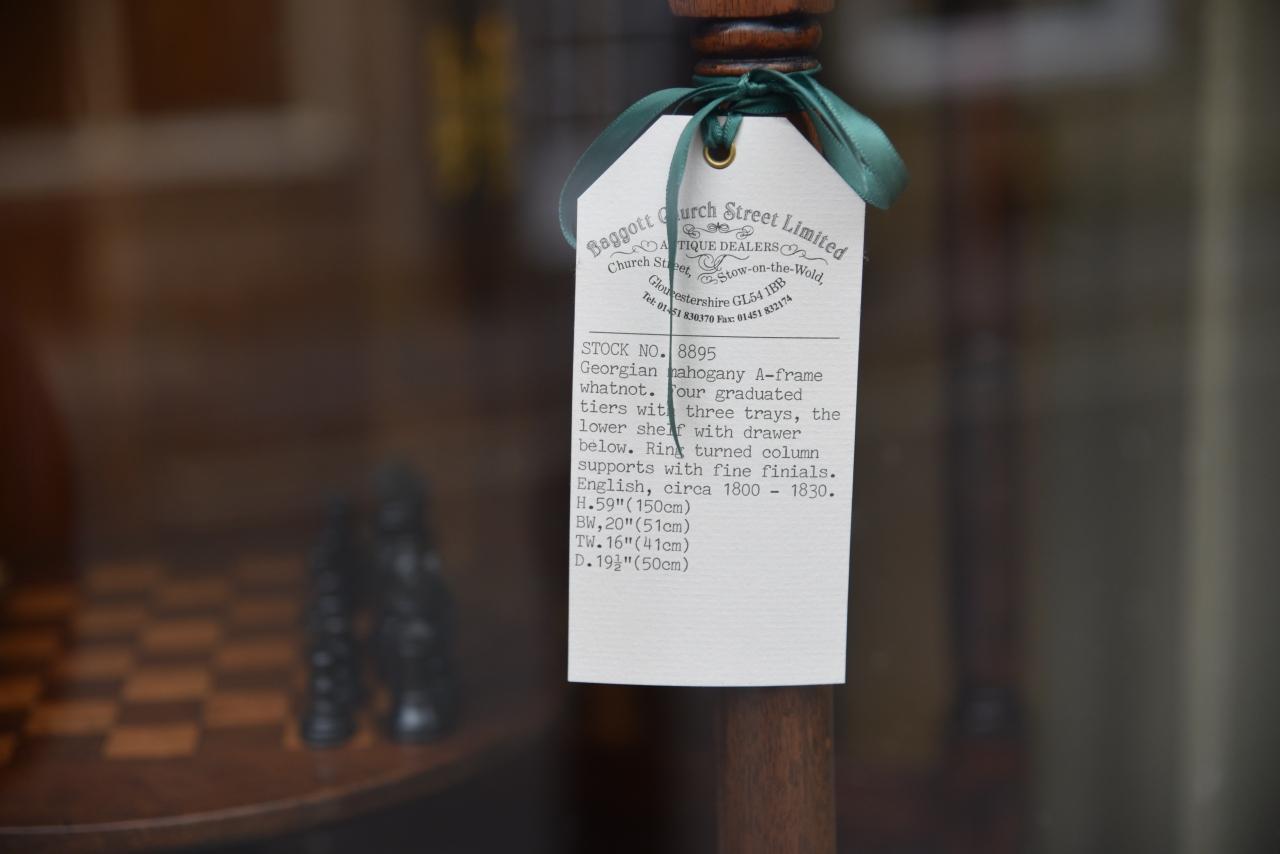 Baggott Church Street Limited
ANTIQUE DEALERS
Church Street, Stow-on-the-Wold,
Gloucestershire GL54 1BB
Tel: 01451 830370 Fax: 01451 832174
STOCK NO. 8895
Georgian mahogany A-frame
whatnot. Four graduated
tiers with three trays, the
lower shelf with drawer
below. Ring turned column
supports with fine finials.
English, circa 1800 - 1830.
H.59"(150cm)
BW,20"(51cm)
TW.16"(41cm)
D.19½"(50cm)